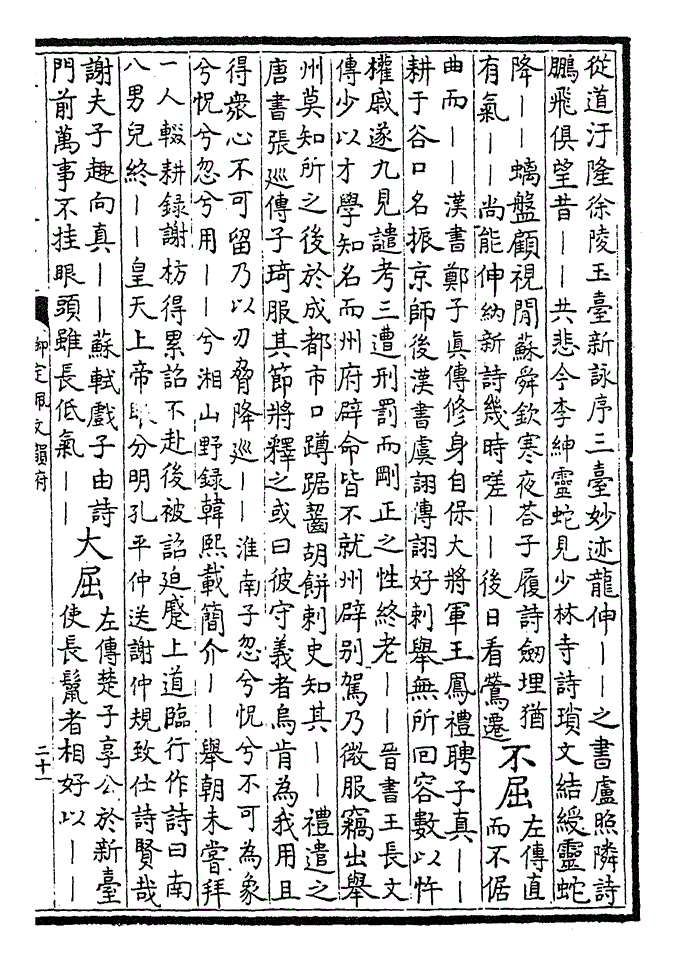 從道汙隆徐陵玉臺新詠序三臺妙迹龍伸丨丨之書盧照隣詩
鵬飛俱望昔丨丨共悲今李紳靈蛇見少林寺詩瑣文結綬靈蛇
降丨丨螭盤顧視閒蘇舜欽寒夜荅子履詩劒埋猶
有氣丨丨尚能伸納新詩幾時嗟丨丨後日看鶯遷
不屈
左傳直
而不倨
曲而丨丨漢書鄭子眞傳修身自保大將軍王鳳禮聘子真丨丨
耕于谷口名振京師後漢書虞詡傳詡好刺舉無所回容數以忤
權戚遂九見譴考三遭刑罰而剛正之性終老丨丨晉書王長文
傳少以才學知名而州府辟命皆不就州辟别駕乃微服竊出舉
州莫知所之後於成都市口蹲踞齧胡餅刺史知其丨丨禮遣之
唐書張巡傳子琦服其節將釋之或曰彼守義者烏肯為我用且
得衆心不可留乃以刃脅降巡丨丨淮南子忽兮怳兮不可為象
兮怳兮忽兮用丨丨兮湘山野録韓熙載簡介丨丨舉朝未嘗拜
一人輟耕録謝枋得累詔不赴後被詔廹蹙上道臨行作詩曰南
八男兒終丨丨皇天上帝眼分明孔平仲送謝仲規致仕詩賢哉
謝夫子趣向真丨丨蘇軾戲子由詩
門前萬事不挂眼頭雖長低氣丨丨
大屈
左傳楚子享公於新臺
使長鬣者相好以丨丨
御定佩文韻府
二十一